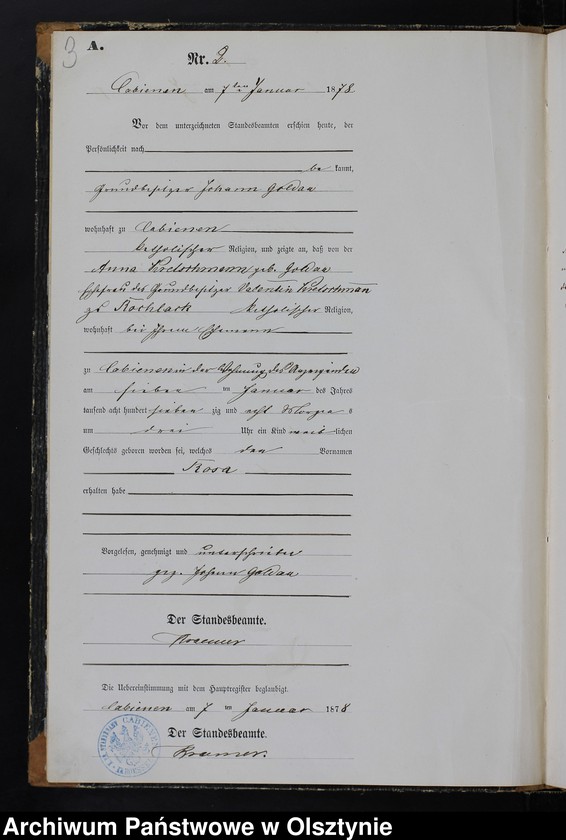 3
A.
Nr. 2.
Cabienen am 7ten Januar 1878
Vor dem unterzeichneten Standesbeamten erschien heute, der
Persönlichkeit nach
be kannt,
Grundbesitzer Johann Goldau
wohnhaft zu Cabienen
katholischer Religion, und zeigte an, daß von der
Anna Kretschmann geb. Goldau
Ehefrau des Grundbesitzer Valentin Kretschman
zu Kochlack katholischer Religion,
wohnhaft bei Ihrem Ehemann
zu Cabienen in der Wohnung des Anzeigenden
am sieben ten Januar des Jahres
tausend acht hundert sieben zig und acht Morgens
um drei Uhr ein Kind weib lichen
Geschlechts geboren worden sei, welches den Vornamen
Rosa
erhalten habe
Vorgelesen, genehmigt und unterschrieben
gez. Johann Goldau
Der Standesbeamte.
Kraemer
Die Uebereinstimmung mit dem Hauptregister beglaubigt.
Cabienen am 7 ten Januar 1878
Der Standesbeamte.
Kraemer.
CABIENEN
Archiwum Państwowe w Olsztynie